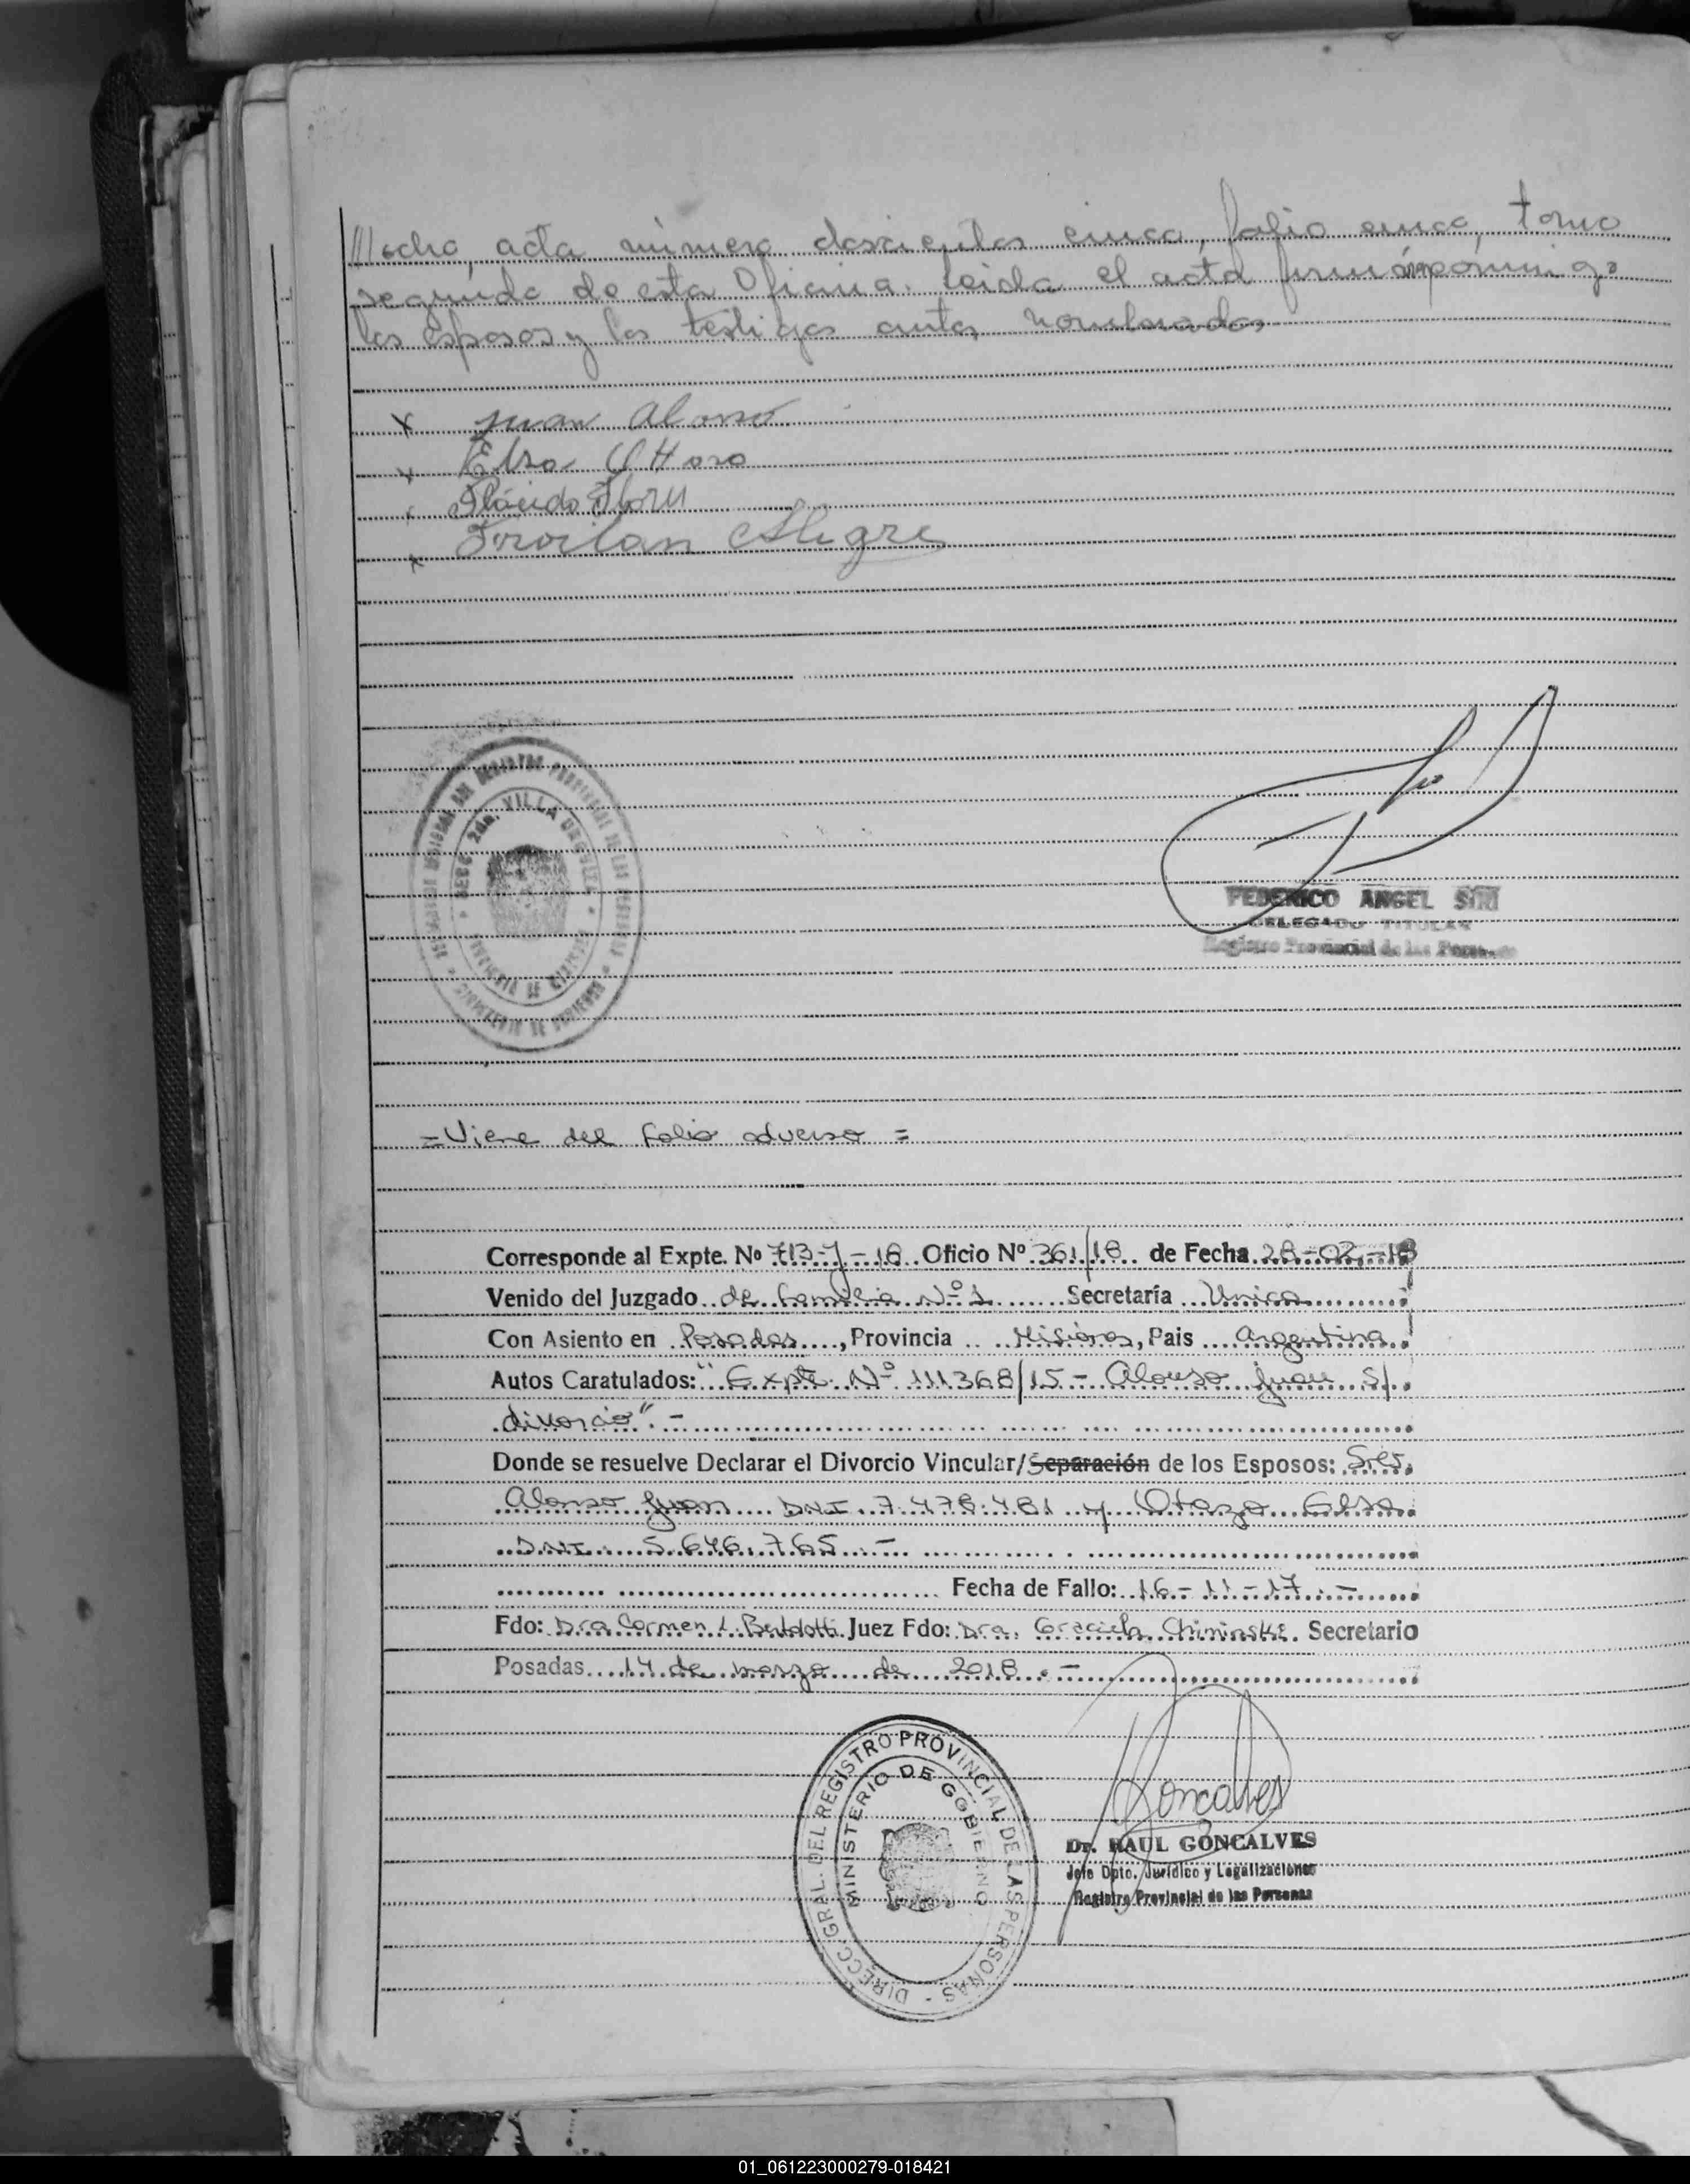 ///ocho, acta número doscientos cinco, folio cinco, tomo
segundo de esta Oficina. Leida el acta firmán conmigo
los esposos y los testigos antes nombrados
x Juan Alonso
x Elsa Otaso
x Plácido
x Froilan Alegre
SECC. 2da. VILLA URQUIZA
PROVINCIA DE MISIONES
MINISTERIO DE GOBIERNO
FEDERICO ANGEL SIRI
DELEGADO TITULAR
Registro Provincial de las Personas
= Viene del folio adverso =
Corresponde al Expte. Nº 713-J-18 Oficio Nº 361/18 de Fecha 28-02-18
Venido del Juzgado de Familia Nº 1 Secretaría Unica
Con Asiento en Posadas, Provincia Misiones, Pais Argentina
Autos Caratulados: "Expte. Nº 111368/15 - Alonso Juan S/
divorcio". -
Donde se resuelve Declarar el Divorcio Vincular/Separación de los Esposos: Sres.
Alonso Juan DNI 7.478.481 y Otazo Elsa
DNI 5.646.765 -
Fecha de Fallo: 16-11-17 -
Fdo: Dra Carmen L. Juez Fdo: Dra. Graciela Secretario
Posadas 14 de marzo de 2018. -
DIRECC. GRAL. DEL REGISTRO PROVINCIAL DE LAS PERSONAS -
MINISTERIO DE GOBIERNO
Goncalves
Dr. RAUL GONCALVES
Jefe Dpto. Jurídico y Legalizaciones
Registro Provincial de las Personas
01_061223000279-018421